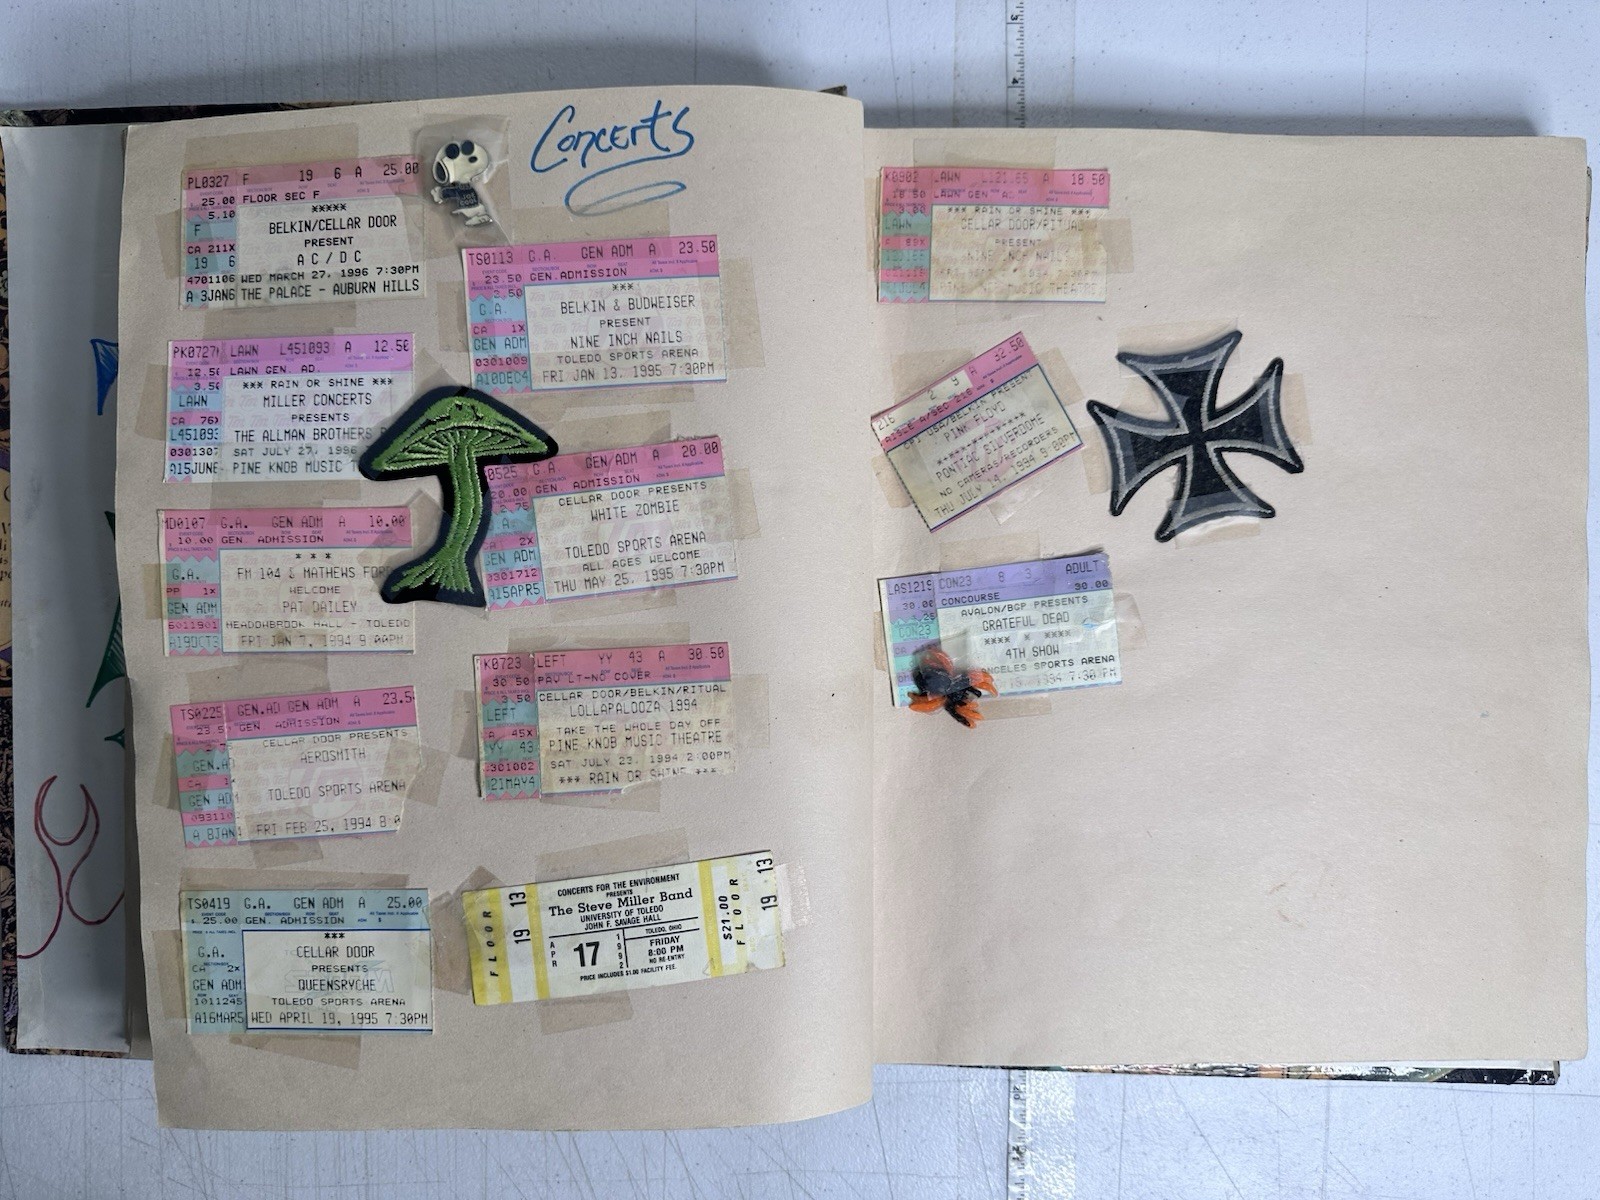 Concerts
PL0327 F 19 6 A 25.00
25.00 FLOOR SEC F
5.10 *****
F BELKIN/CELLAR DOOR
PRESENT
CA 211X AC/DC
19 6
4701106 WED MARCH 27, 1996 7:30PM
A 3JAN6 THE PALACE - AUBURN HILLS
PK0727 LAWN L451093 A 12.50
12.50 LAWN GEN. AD.
3.50 *** RAIN OR SHINE ***
LAWN MILLER CONCERTS
CA 76X PRESENTS
L451093 THE ALLMAN BROTHERS
0301307 SAT JULY 27, 1996
A15JUNE PINE KNOB MUSIC
MD0107 G.A. GEN ADM A 10.00
10.00 GEN. ADMISSION
* * *
G.A. FM 104 & MATHEWS FORD
PP 1X WELCOME
GEN ADM PAT DAILEY
6011901 MEADOWBROOK HALL - TOLEDO
A19OCT3 FRI JAN 7, 1994 9:00PM
TS0225 GEN.AD GEN ADM A 23.5
23.5 GEN. ADMISSION
CELLAR DOOR PRESENTS
GEN.AD AEROSMITH
CA
GEN ADM TOLEDO SPORTS ARENA
093110
A 8JAN4 FRI FEB 25, 1994 8:0
TS0419 G.A. GEN ADM A 25.00
25.00 GEN. ADMISSION
***
G.A. CELLAR DOOR
CA 2X PRESENTS
GEN ADM QUEENSRYCHE
1011245 TOLEDO SPORTS ARENA
A16MAR5 WED APRIL 19, 1995 7:30PM
JOE COOL
TS0113 G.A. GEN ADM A 23.50
23.50 GEN. ADMISSION
2.50 ***
G.A. BELKIN & BUDWEISER
CA 1X PRESENT
GEN ADM NINE INCH NAILS
0301009 TOLEDO SPORTS ARENA
A10DEC4 FRI JAN 13, 1995 7:30PM
0525 G.A. GEN/ADM A 20.00
20.00 GEN. ADMISSION
2.75 CELLAR DOOR PRESENTS
WHITE ZOMBIE
CA 2X
GEN ADM TOLEDO SPORTS ARENA
0301712 ALL AGES WELCOME
A15APR5 THU MAY 25, 1995 7:30PM
K0723 LEFT YY 43 A 30.50
30.50 PAV LT-NO COVER
3.50 CELLAR DOOR/BELKIN/RITUAL
LEFT LOLLAPALOOZA 1994
A 45X TAKE THE WHOLE DAY OFF
YY 43 PINE KNOB MUSIC THEATRE
301002 SAT JULY 23, 1994 2:00PM
21MAY4 *** RAIN OR SHINE ***
FLOOR
19 13
CONCERTS FOR THE ENVIRONMENT
PRESENTS
The Steve Miller Band
UNIVERSITY OF TOLEDO
JOHN F. SAVAGE HALL
TOLEDO, OHIO
APR 17 1992
FRIDAY
8:00 PM
NO RE-ENTRY
PRICE INCLUDES $1.00 FACILITY FEE
$21.00
FLOOR
19 13
K0902 LAWN L121.65 A 18.50
18.50 LAWN GEN AD
3.00 *** RAIN OR SHINE ***
LAWN CELLAR DOOR/RITUAL
PRESENT
NINE INCH NAILS
MUSIC THEATRE
216 2 9 A 32.50
AISLE A/SEC 216
USA/BELKIN PRESENT
PINK FLOYD
PONTIAC SILVERDOME
NO CAMERAS/RECORDERS
THU JULY 14, 1994 9:00PM
LAS1219 CON23 8 3 ADULT
30.00 CONCOURSE 30.00
4.25 AVALON/BGP PRESENTS
CON23 GRATEFUL DEAD
**** * ****
4TH SHOW
ANGELES SPORTS ARENA
1994 7:30 PM